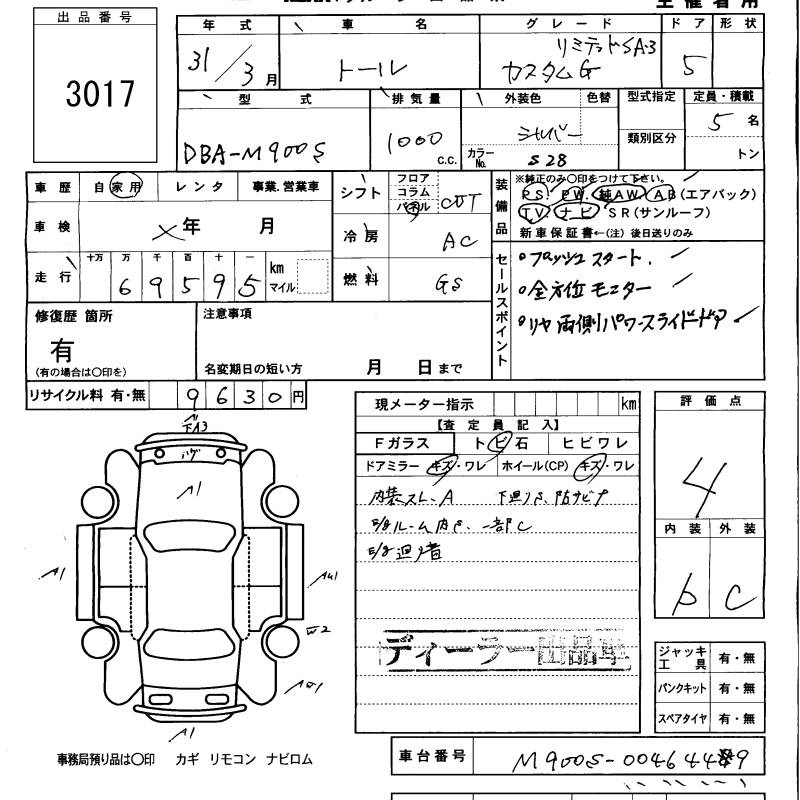 出品番号
3017
年式
31/3月
車名
トール
グレード
リミテッドSA3
カスタムG
ドア
5
形状
型式
DBA-M900S
排気量
1000
c.c.
外装色
シルバー
色替
カラーNo.
S28
型式指定
類別区分
定員・積載
5名
トン
車歴
自家用
レンタ
事業.営業車
車検
年 月
走行
十万 万 千 百 十 一
69595
km
マイル
シフト
フロア
コラム
パネル
CVT
冷房
AC
燃料
GS
装備品
※純正のみ〇印をつけて下さい。
PS. PW. 純AW. AB(エアバック)
TV. ナビ SR(サンルーフ)
新車保証書←(注) 後日送りのみ
セールスポイント
プッシュスタート.
全方位モニター
リヤ両側パワースライドドア
修復歴 箇所
有
(有の場合は〇印を)
注意事項
名変期日の短い方
月 日まで
リサイクル料 有・無
9630円
現メーター指示
km
【査定員記入】
Fガラス
トビ石
ヒビワレ
ドアミラー キズ・ワレ
ホイール(CP) キズ・ワレ
内装スレ、A
ルーム内S、一部C
評価点
4
内装
外装
C
A1
A1
W2
A1
ディーラー出品車
ジャッキ工具 有・無
パンクキット 有・無
スペアタイヤ 有・無
事務局預り品は〇印 カギ リモコン ナビロム
車台番号